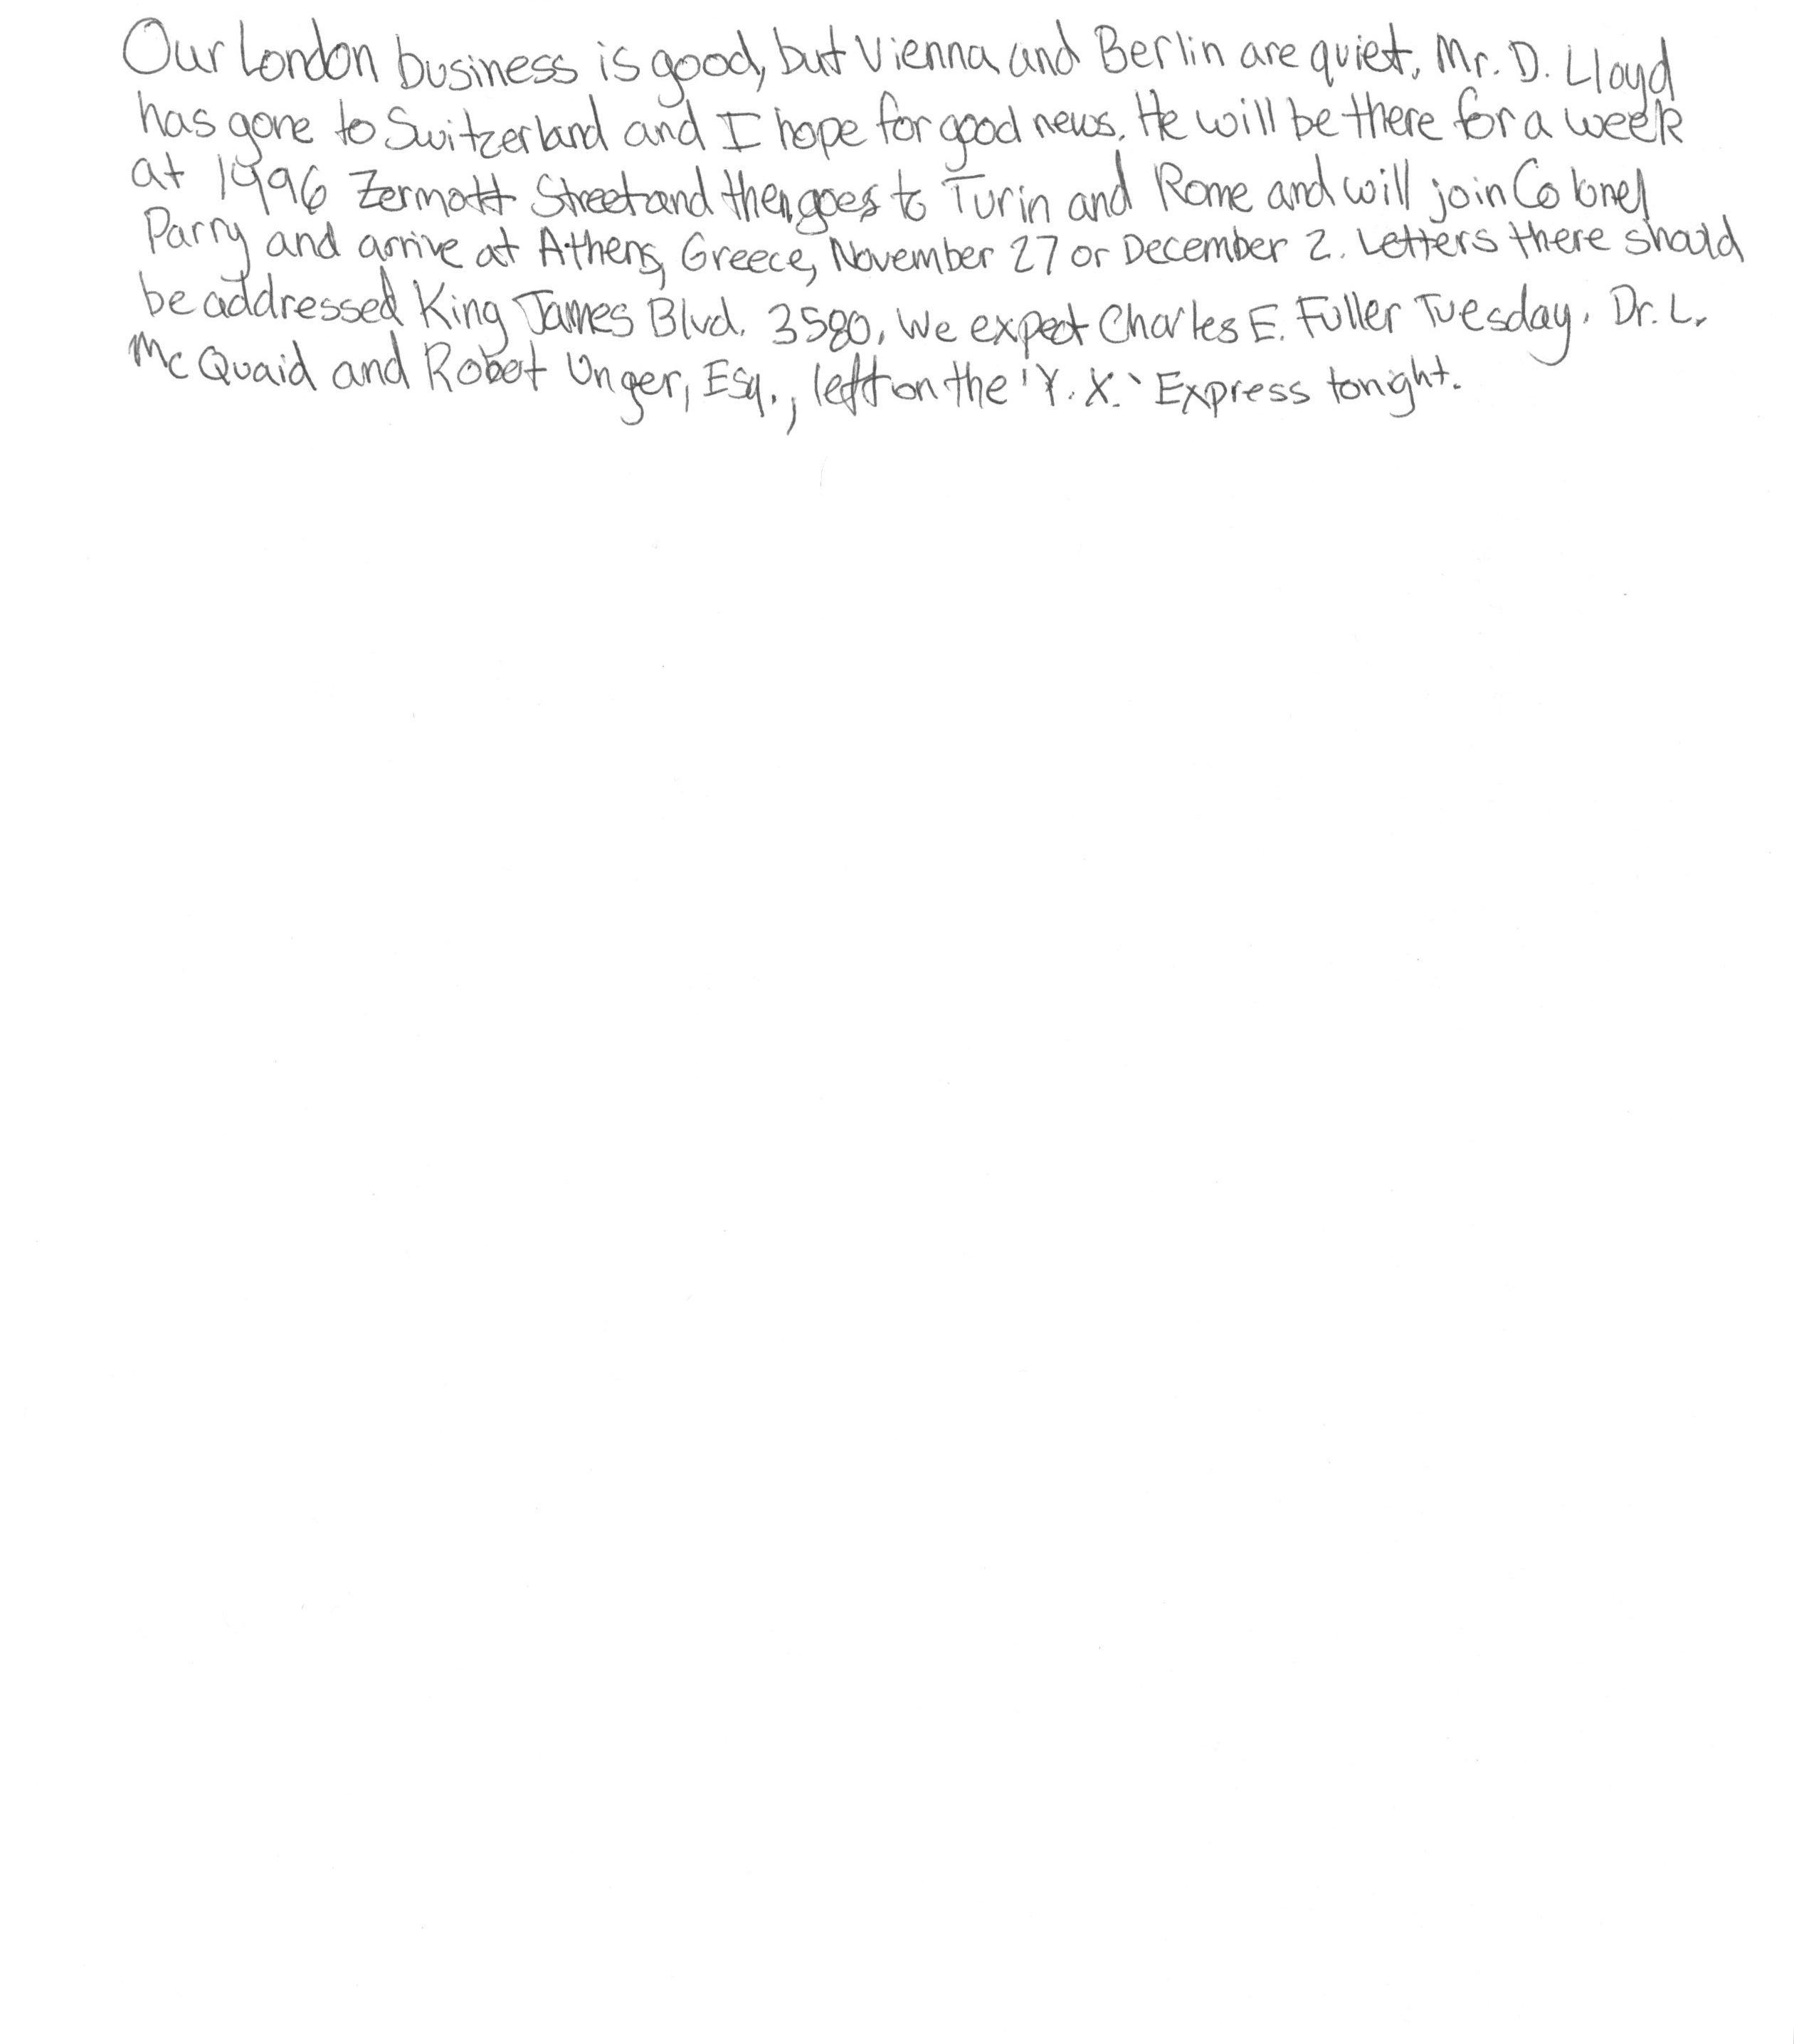 Our London business is good, but Vienna and Berlin are quiet. Mr. D. Lloyd
has gone to Switzerland and I hope for good news. He will be there for a week
at 1996 Zermott Street and then goes to Turin and Rome and will join Colonel
Parry and arrive at Athens, Greece, November 27 or December 2. Letters there should
be addressed King James Blvd. 3580. We expect Charles E. Fuller Tuesday. Dr. L.
McQuaid and Robert Unger, Esq., left on the 'Y. X.' Express tonight.